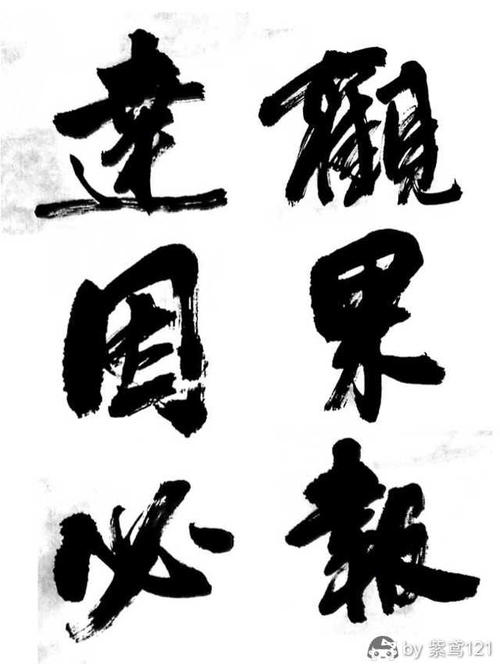 達觀
因果
必報
by 紫鸢121